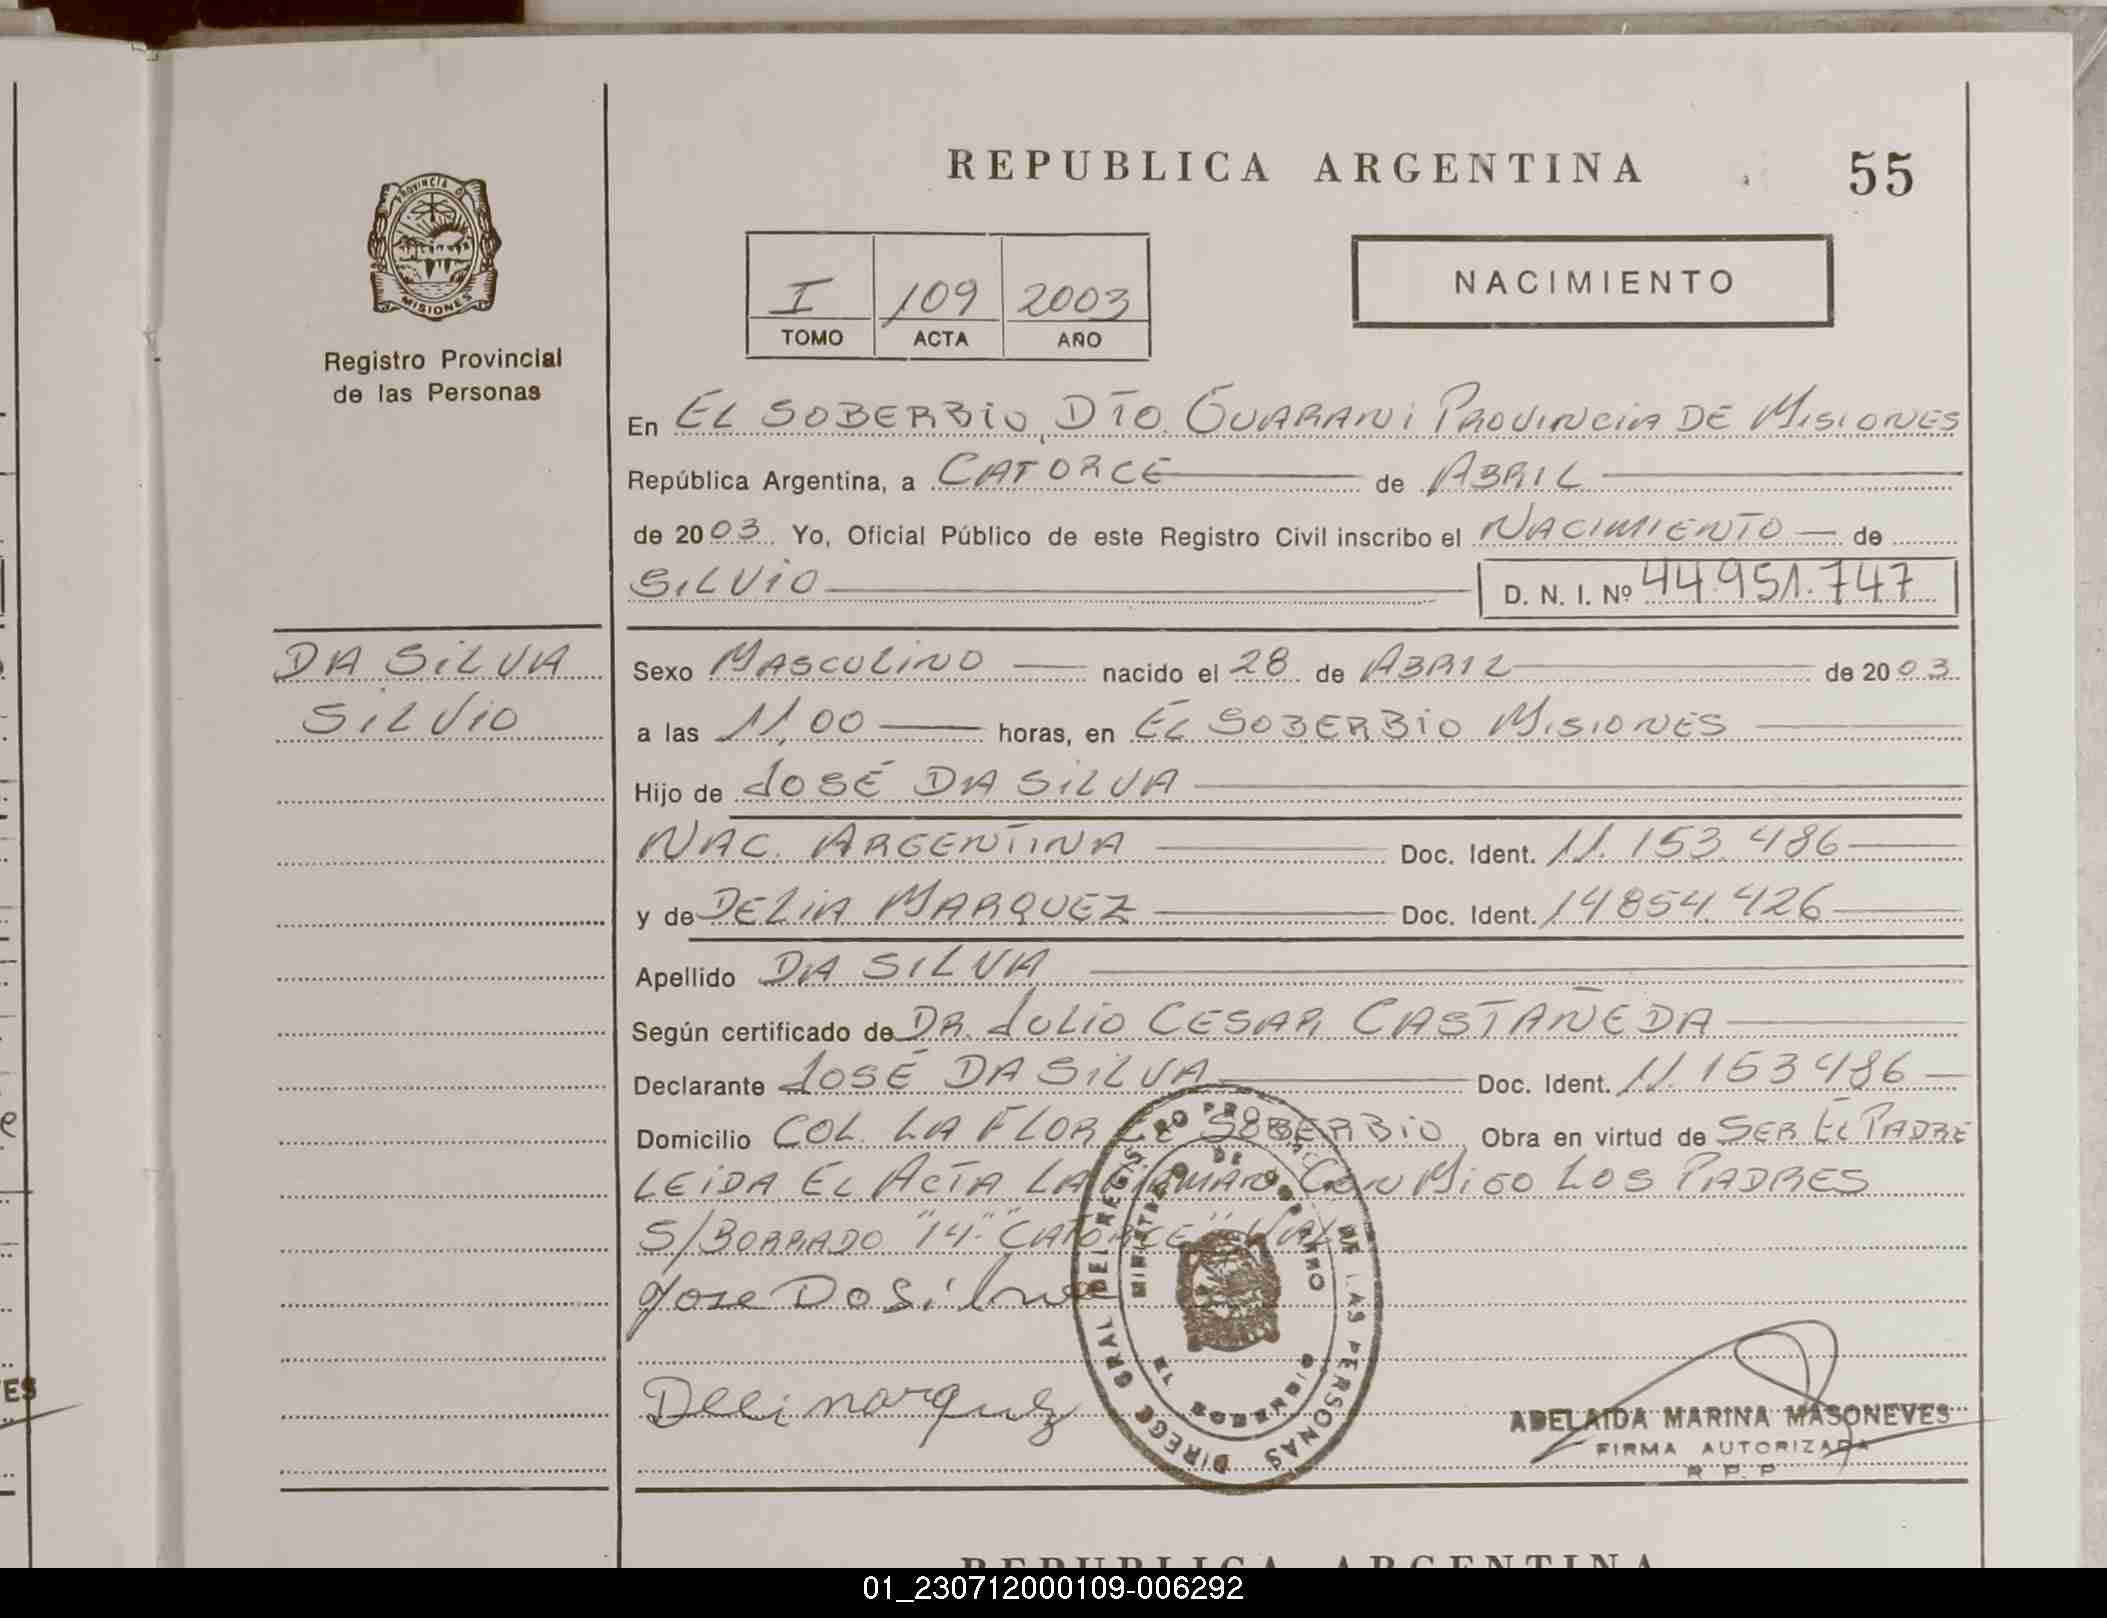 REPUBLICA ARGENTINA
55
PROVINCIA D
MISIONES
Registro Provincial
de las Personas
I 109 2003
TOMO ACTA AÑO
NACIMIENTO
En EL SOBERBIO, DTO. GUARANI PROVINCIA DE MISIONES
República Argentina, a CATORCE de ABRIL
de 2003 Yo, Oficial Público de este Registro Civil inscribo el NACIMIENTO de
SILVIO D. N. I. Nº 44.951.747
DA SILVA
SILVIO
Sexo MASCULINO nacido el 28 de ABRIL de 2003
a las 11,00 horas, en EL SOBERBIO MISIONES
Hijo de JOSÉ DA SILVA
NAC. ARGENTINA Doc. Ident. 11.153.486
y de DELIA MARQUEZ Doc. Ident. 14854.426
Apellido DA SILVA
Según certificado de DR. JULIO CESAR CASTAÑEDA
Declarante JOSÉ DA SILVA Doc. Ident. 11.153486
Domicilio COL. LA FLOR EL SOBERBIO Obra en virtud de SER EL PADRE
LEIDA EL ACTA LA FIRMAN CONMIGO LOS PADRES
S/BORRADO "14" "CATORCE" VALE
Jose Da Silva
Deli marquez
DIRECC GRAL DEL REGISTRO PROV DE LAS PERSONAS
MINISTERIO DE GOBIERNO
ADELAIDA MARINA MASONEVES
FIRMA AUTORIZADA
R. P. P
REPUBLICA ARGENTINA
01_230712000109-006292